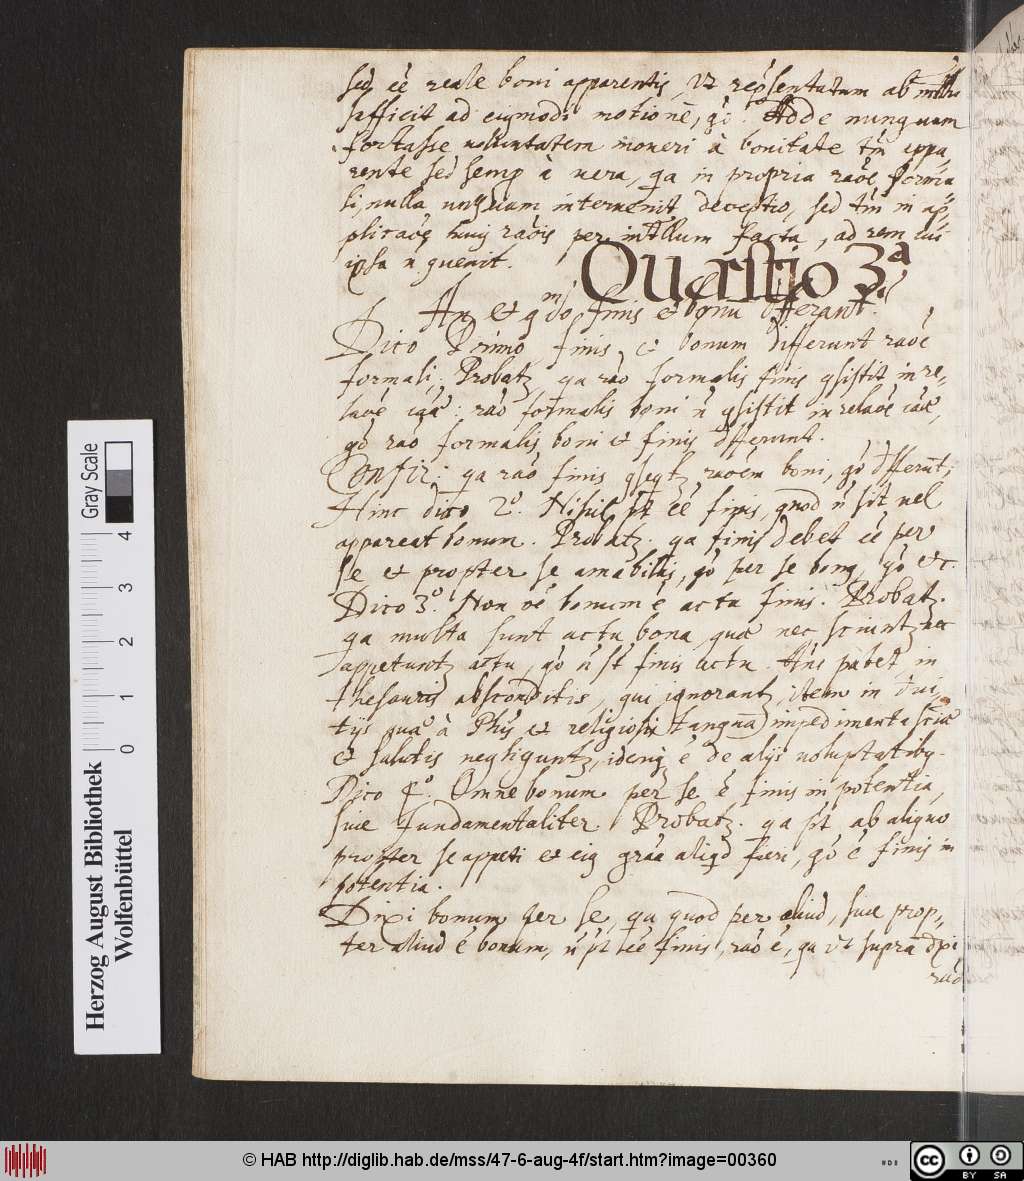 sed ēē reale boni apparentis, ut repsentatum ab intllu
sufficit ad eiqmodi motionē, gō. Adde nunquam
fortasse uoluntatem moueri à bonitate tm̄ appa,
rente sed semp à uera, qa in propria raōe forma
li, nulla unquam interuenit deceptio, sed tm̄ in ap,
plicaōe huiq raōis per intllum facta, ad rem cui
ipsa n̄ quenit.
Quæstio 3.ª
An et qmodo finis et bonū dfferant.
Dico Primo finis, et bonum differunt raōe
formali. Probatz, qa raō formalis finis qsistit in re,
laōe iqa: raō formalis boni n̄ qsistit in relaōe
gō raō formalis boni et finis dfferunt.
Confir: qa raō finis qseqtz raōem boni, gō dfferūt;
Hinc dico 2.º Nihil pt ēē finis, quod n̄ sit uel
appareat bonum. Probatz. qa finis debet ēē per
se et propter se amabilis, gō per se bonq, gō etc.
Dico 3.º Non oē bonum ē actu finis. Probatz.
qa multa sunt actu bona, quæ nec sciuntz nec
appetuntz actu, gō n̄ st finis actu. Añs patet in
thesauris absconditis, qui ignorantz, item in diui,
tijs quæ à Phis et religiosis tanquā impedimenta sciæ
et salutis negliguntz, idenq ē de alijs uoluptatibq.
Dico 4.º Omne bonum per se ē finis in potentia,
siue fundamentaliter. Probatz. qa pt ab aliquo
propter se appeti et eiq graā aliqd fieri, gō ē finis in
potentia.
Dixi bonum per se, qa quod per aliud, siue prop,
ter aliud ē bonum, n̄ pt ēē finis, raō ē, qa ut supra dxi
raō
Herzog August Bibliothek
Wolfenbüttel
Gray Scale
0 1 2 3 4
© HAB http://diglib.hab.de/mss/47-6-aug-4f/start.htm?image=00360
cc BY SA